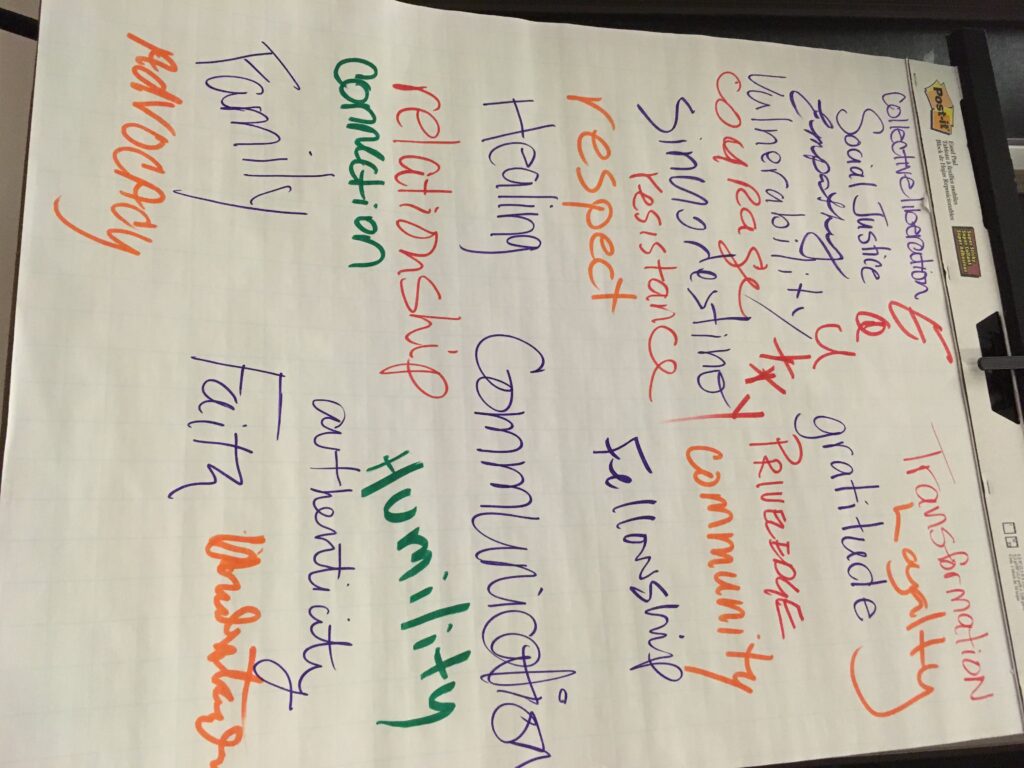 Post-it
collective liberation
Transformation
Social Justice
Loyalty
Empathy
gratitude
Vulnerability
courage
community
resistance
Fellowship
respect
Healing
Communication
relationship
Humility
connection
authenticity
Family
Faith
ADVOCACY